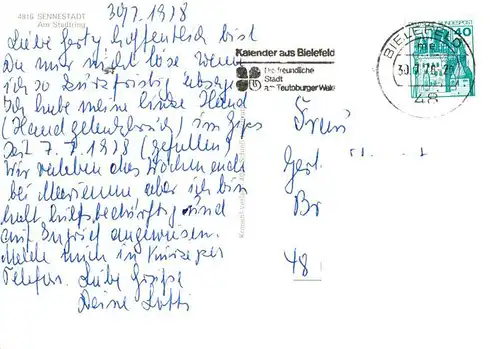 4816 SENNESTADT
Am Stadtring
30/7 1978
Liebe Gerty hoffentlich bist
Du mir nicht böse wenn
ich so kurzfristig absage
Ich habe meine linke Hand
(Handgelenkbruch) im Gips
seit 7.7.1978 (gefallen)
Wir verleben das Wochenende
bei Marianne aber ich bin
halt hilfsbedürftig und
auf Ingrid angewiesen.
Melde mich in Kürze per
Telefon. Liebe Grüße
Deine Lotti
Kalender aus Bielefeld
Die freundliche
Stadt
am Teutoburger Wald
BIELEFELD
48
40
Frau
Gert
Br
48